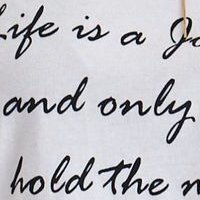 Life is a Jo
and only
hold the